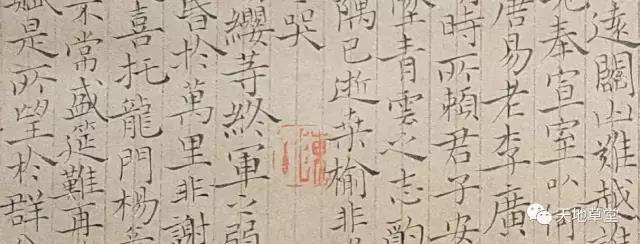 遠關山難越誰
見奉宣室以何
唐易老李廣
時所賴君子安
墜青雲之志酌
隅已逝桑榆非
哭
纓等終軍之弱
昏於萬里非謝
喜托龍門楊
不常盛筵難再
賦是所望於群
天地草堂